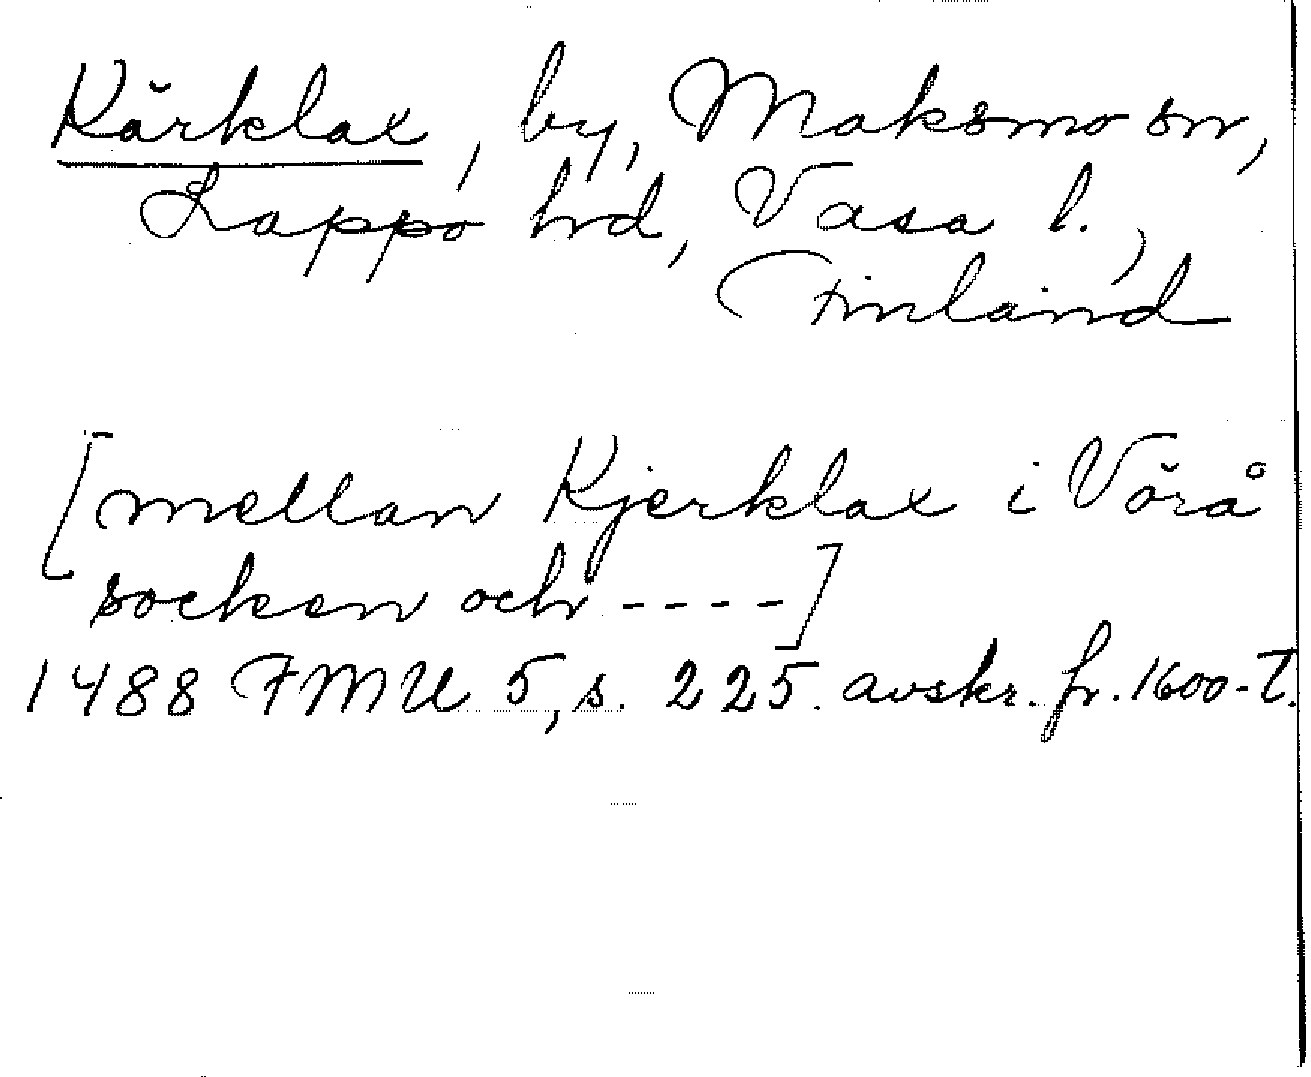 Kärklax, by, Maksmo sn,
Lappo hd, Vasa l.,
Finland
[mellan Kjerklax i Vörå
socken och ----]
1488 FMU 5, s. 225. avskr. fr. 1600-t.